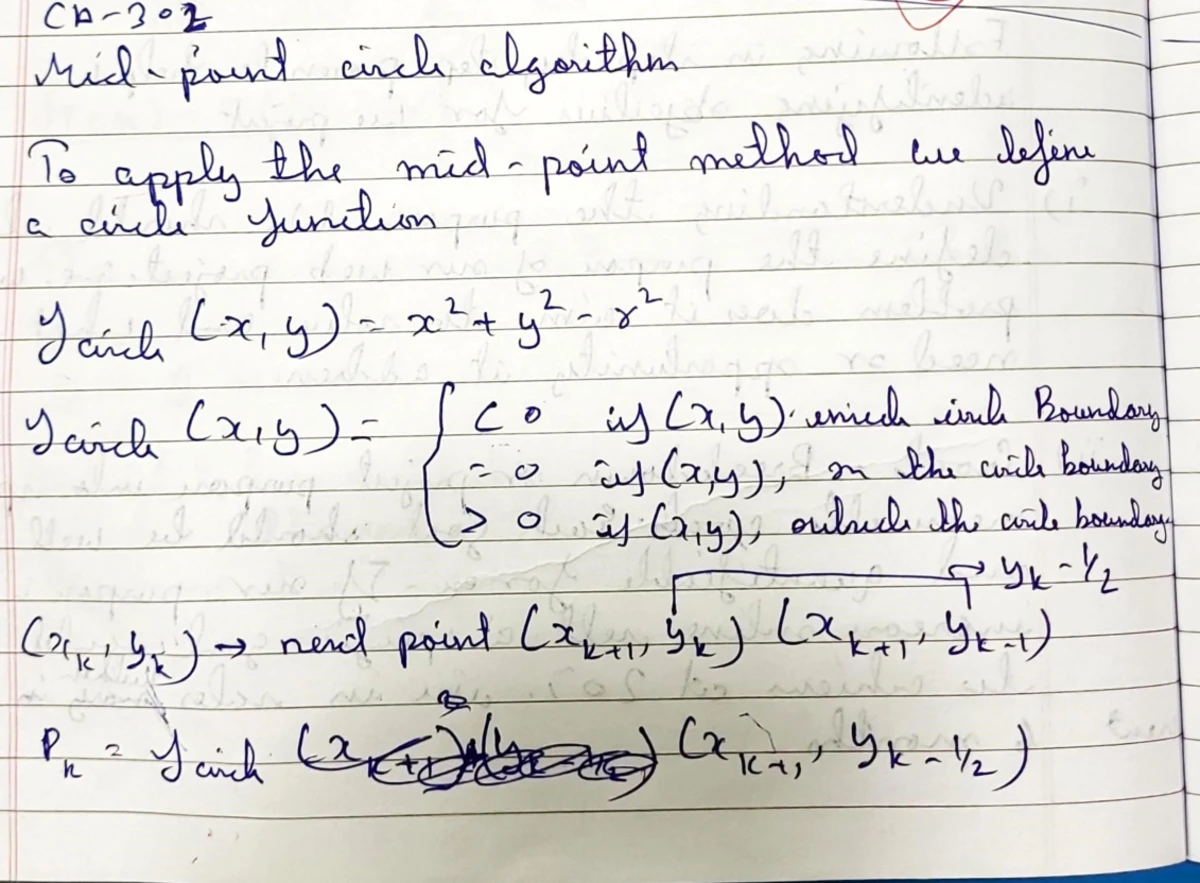 CA-302
Mid-point circle algorithm
To apply the mid-point method we define
a circle function
f circle (x, y) = x² + y² - r²
f circle (x, y) = { < 0 if (x, y) inside circle Boundary
= 0 if (x, y), on the circle boundary
> 0 if (x, y), outside the circle boundary
→ yₖ - 1/2
(xₖ, yₖ) → next point (xₖ₊₁, yₖ) (xₖ₊₁, yₖ₋₁)
Pₖ = f circle (xₖ₊₁, yₖ - 1/2)